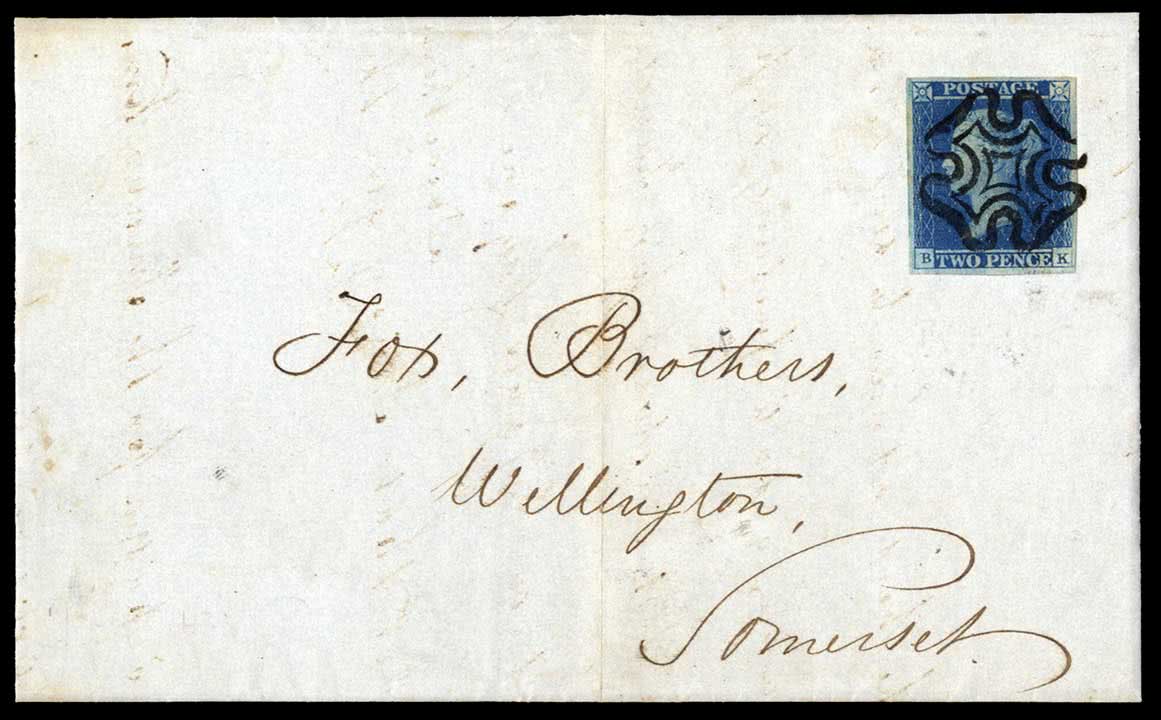 POSTAGE
B TWO PENCE K
Fox, Brothers,
Wellington,
Somerset